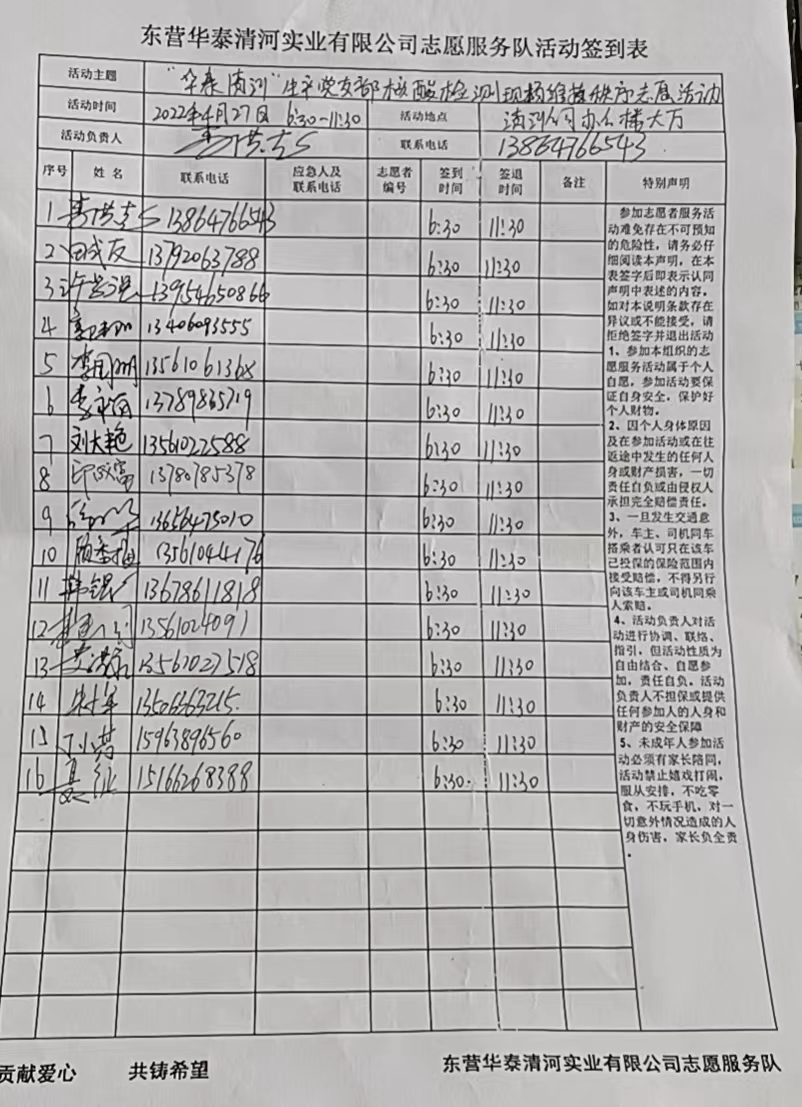 东营华泰清河实业有限公司志愿服务队活动签到表
活动主题 "华泰清河"生产党支部核酸检测现场维持秩序志愿活动
活动时间 2022年4月27日 6:30-11:30 活动地点 清河公司办公楼大厅
活动负责人 联系电话 13864766543
序号 姓名 联系电话 应急人及联系电话 志愿者编号 签到时间 签退时间 备注 特别声明
1 13864766543 6:30 11:30
2 田成友 13792063788 6:30 11:30
3 13954650866 6:30 11:30
4 13406093555 6:30 11:30
5 李国明 13561061368 6:30 11:30
6 13789835719 6:30 11:30
7 刘大艳 13561022588 6:30 11:30
8 13780785378 6:30 11:30
9 13656475010 6:30 11:30
10 13561044176 6:30 11:30
11 13678611818 6:30 11:30
12 13561024091 6:30 11:30
13 13561027518 6:30 11:30
14 13506363215 6:30 11:30
15 15963896560 6:30 11:30
16 15166268388 6:30 11:30
参加志愿者服务活
动难免存在不可预知
的危险性，请务必仔
细阅读本声明，在本
表签字后即表示认同
声明中表述的内容。
如对本说明条款存在
异议或不能接受，请
拒绝签字并退出活动
1、参加本组织的志
愿服务活动属于个人
自愿，参加活动要保
证自身安全，保护好
个人财物。
2、因个人身体原因
及在参加活动或在往
返途中发生的任何人
身或财产损害，一切
责任自负或由侵权人
承担完全赔偿责任。
3、一旦发生交通意
外，车主、司机同车
搭乘者认可只在该车
已投保的保险范围内
接受赔偿，不得另行
向该车主或司机同乘
人索赔。
4、活动负责人对活
动进行协调、联络、
指引，但活动性质为
自由结合、自愿参
加，责任自负。活动
负责人不担保或提供
任何参加人的人身和
财产的安全保障
5、未成年人参加活
动必须有家长陪同，
活动禁止嬉戏打闹，
服从安排，不吃零
食，不玩手机，对一
切意外情况造成的人
身伤害，家长负全责
。
贡献爱心 共铸希望 东营华泰清河实业有限公司志愿服务队